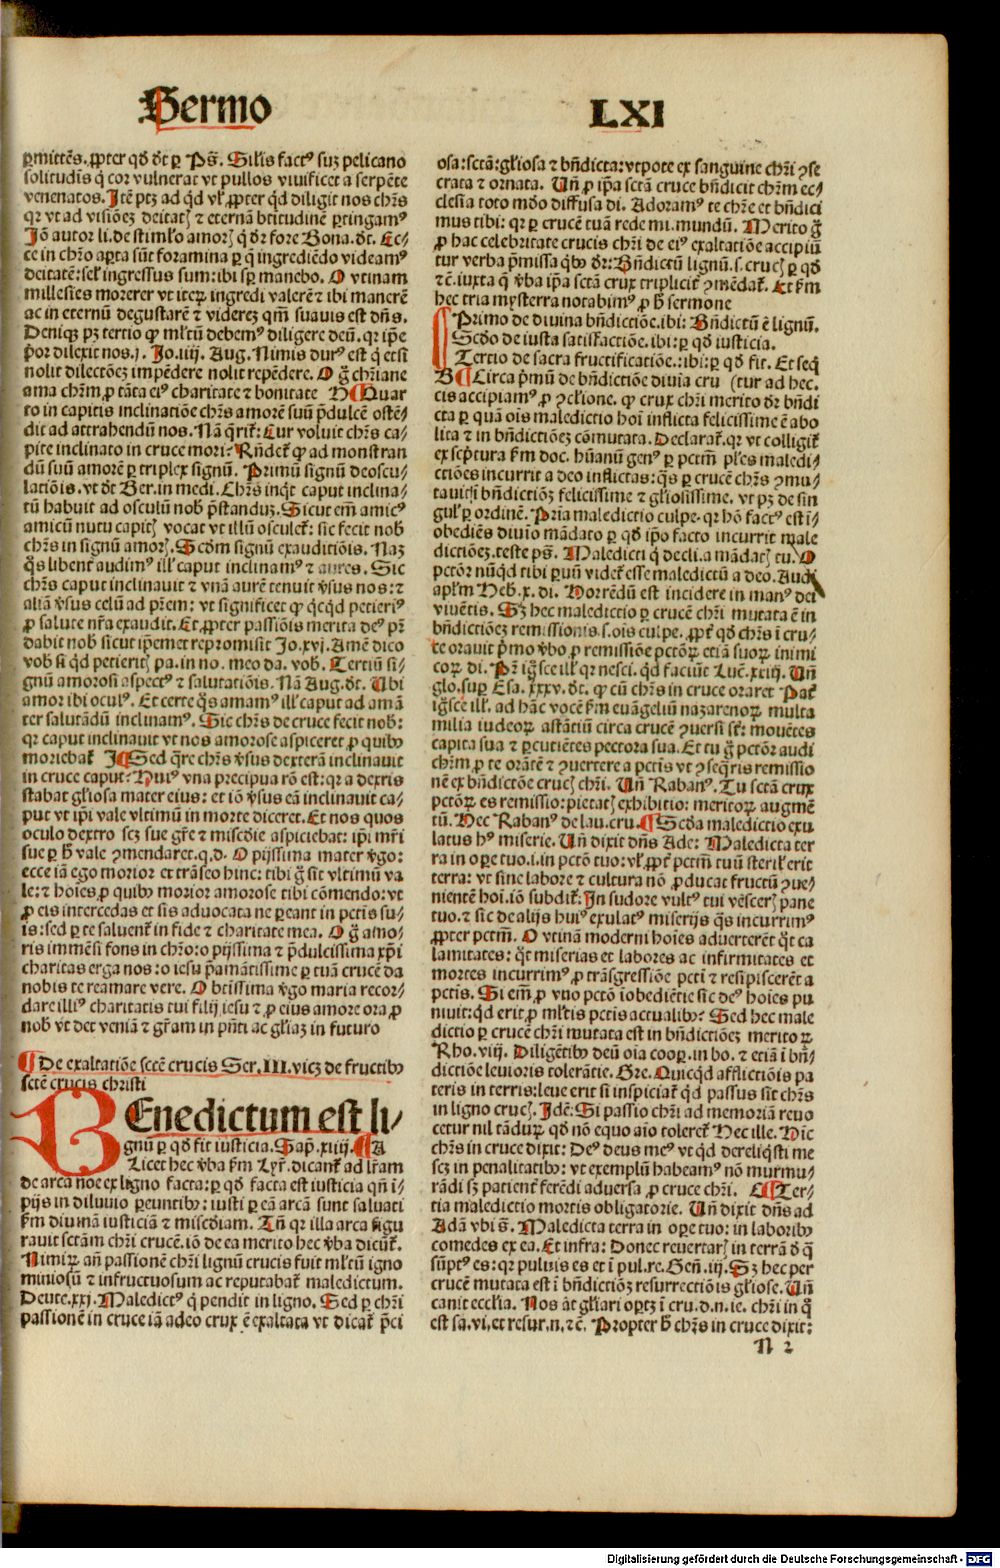 Sermo
LXI
p̲mittēs. ꝓpter qd̄ dt̄ p̲ Ps̄. Sil̓is factꝰ suʒ pelicano
solitudīs q̇ cor vulnerat vt pullos viuificet a serpēte
venenatos. Itē ptʒ ad qd̓ vl̓ ꝓpter qd̓ diligit nos chr̄s
qꝛ vt ad visiōeʒ deitatꝭ ⁊ eternā btitudinē p̲tingamꝰ
Iō autor li. de stimľo amorꝭ q̇ dr̄ fore Bona. dt̄. Ec⸗
ce in chr̄o ap̲ta sūt foramina p̲ q̄ ingrediēdo videamꝰ
deitatē: sel̓ ingressus sum: ibi sp̲ manebo. O vtinam
millesies morerer vt iteꝝ ingredi valerē ⁊ ibi manerē
ac in eternū degustarē ⁊ videreʒ qm̄ suauis est dn̄s.
Deniqʒ pʒ tertio ꝙ ml̓tū debemꝰ diligere deū. qꝛ ip̄e
p̄or dilexit nos. j. Io. iiij. Aug. Nimis durꝰ est q̇ etsi
nolit dilectōeʒ impēdere nolit repēdere. O ḡ chr̄iane
ama chr̄m ꝓ tāta eiꝰ charitate ⁊ bonitate H ¶ Quar
to in capitis inclinatiōe chr̄s amorē suū p̄dulcē ostē⸗
dit ad attrahendū nos. Nā q̄rit̄: Cur voluit chr̄s ca⸗
pite inclinato in cruce mori? Rn̄det̄ ꝙ ad monstran
dū suū amorē p̲ triplex signū. Primū signū deoscu⸗
latiōis. vt dt̄ Ber. in medi. Chr̄s inqt̓ caput inclina⸗
tū habuit ad osculū nob̓ p̄standuʒ. Sicut em̄ amicꝰ
amicū nutu capitꝭ vocat vt illū osculet̄: sic fecit nob̓
chr̄s in signū amorꝭ. Scd̄m signū exauditiōis. Naʒ
qs̓ libent̓ audimꝰ ill̓ caput inclinamꝰ ⁊ aures. Sic
chr̄s caput inclinauit ⁊ vnā aurē tenuit v̓sus nos: ⁊
aliā v̓sus celū ad pr̄em: vt significet ꝙ qc̓qd̓ petierꝭ
ꝓ salute nr̄a exaudit. Et ꝓpter passiōis merita deꝰ pr̄
dabit nob̓ sicut ip̄emet repromisit Io. xvj. Amē dico
vob̓ si qd̓ petieritꝭ pa. in no. meo da. vob̓. Tertiū si⸗
gnū amorosi aspectꝰ ⁊ salutatiōis. Nā Aug. dt̄. Ubi
amor ibi oculꝰ. Et certe qs̓ amamꝰ ill̓ caput ad amā
ter salutādū inclinamꝰ. Sic chr̄s de cruce fecit nob̓:
qꝛ caput inclinauit vt nos amorose aspiceret ꝓ quibꝫ
moriebat̄ I ¶ Sed q̄re chr̄s v̓sus dexterā inclinauit
in cruce caput? Huiꝰ vna precipua rō est: qꝛ a dexris
stabat gl̓iosa mater eius: et iō v̓sus eā inclinauit ca⸗
put vt ip̄i vale vltimū in morte diceret. Et nos quos
oculo dextro scʒ sue gr̄e ⁊ miscd̄ie aspiciebat: ip̄i mr̄i
sue p̲ h̓ vale ꝯmendaret. q. d. O pijssima mater v̓go:
ecce iā ego morior et trāseo hinc: tibi ḡ sit vltimū va
le: ⁊ hoīes ꝓ quibꝫ morior amorose tibi cōmendo: vt
ꝓ eis intercedas et sis advocata ne p̲eant in pctīs su⸗
is: sed p̲ te saluent̄ in fide ⁊ charitate mea. O ḡ amo⸗
ris immēsi fons in chr̄o: o pijssima ⁊ p̄dulcissima xp̄i
charitas erga nos: o iesu p̄amātissime p̲ tuā crucē da
nobis te reamare vere. O btīssima v̓go maria recor⸗
dare illiꝰ charitatis tui filij iesu ⁊ ꝓ eius amore ora ꝓ
nob̓ vt det veniā ⁊ gr̄am in pn̄ti ac gl̓iaʒ in futuro
¶ De exaltatiōe scтē crucis Ser. III. vicʒ de fructibꝫ
scтē crucis christi
BEnedictum est li⸗
gnū p̲ qd̄ fit iusticia. Sap̄. xiiij. ¶ A
Licet hec v̓ba fm̄ Lyr̄. dicant̄ ad lr̄am
de arca noe ex ligno facta: p̲ qd̄ facta est iusticia qn̄ ī⸗
pijs in diluuio p̲euntibꝫ: iusti p̲ eā arcā sunt saluati
fm̄ diuinā iusticiā ⁊ miscd̄iam. Tn̄ qꝛ illa arca figu
rauit sctām chr̄i crucē. iō de ea merito hec v̓ba dicūt̄.
Nimiꝝ añ passionē chr̄i lignū crucis fuit ml̓tū igno
miniosū ⁊ infructuosum ac reputabat̄ maledictum.
Deute. xxj. Maledictꝰ q̇ pendit in ligno. Sed p̲ chr̄i
passionē in cruce iā adeo crux ē exaltata vt dicat̄ p̄ci
osa: sctā: gl̓iosa ⁊ bn̄dicta: vtpote ex sanguine chr̄i ꝯse
crata ⁊ ornata. Un̄ ꝓ ip̄a sctā cruce bn̄dicit chr̄m ec⸗
clesia toto mōdo diffusa di. Adoramꝰ te chr̄e et bn̄dici
mus tibi: qꝛ p̲ crucē tuā rede mi. mundū. Merito ḡ
ꝓ hac celebritate crucis chr̄i de eiꝰ exaltatiōe accipiū
tur verba p̄missa qb̓ꝫ dr̄: Bn̄dictū lignū. s. crucꝭ p̲ qd̄
⁊c̄. iuxta q̄ v̓ba ip̄a sctā crux triplicit̓ ꝯmēdat̄. Et fm̄
hec tria mysterra notabimꝰ ꝓ h̓ sermone
Primo de diuina bn̄dictiōe. ibi: Bn̄dictū ē lignū.
Scd̄o de iusta satisfactiōe. ibi: p̲ qd̄ iusticia.
Tertio de sacra fructificatiōe.: ibi: p̲ qd̄ fit. Et seq̄
B ¶ Circa p̄mū de bn̄dictiōe diuīa cru (tur ad hec.
cis accipiamꝰ ꝓ ꝯclione. ꝙ crux chr̄i merito dr̄ bn̄di
cta p̲ quā oīs maledictio hoī inflicta felicissime ē abo
lita ⁊ in bn̄dictiōeʒ cōmutata. Declarat̄. qꝛ vt colligit̄
ex scp̄tura fm̄ doc. hūanū genꝰ p̲ pctm̄ pl̓es maledi⸗
ctiōes incurrit a deo inflictas: qs̓ p̲ crucē chr̄s ꝯmu⸗
tauit ī bn̄dictiōʒ felicissime ⁊ gl̓iosissime. vt pʒ de sin
gul̓ p̲ ordinē. Pria maledictio culpe. qꝛ hō factꝰ est ī⸗
obediēs diuīo mādato p̲ qd̄ ip̄o facto incurrit male
dictiōeʒ. teste ps̄. Maledicti q̇ decli. a mādatꝭ tu. O
pctōr nūqd̓ tibi p̲uū videt̄ esse maledictū a deo. Audi
apl̓m Heb. x. di. Horrēdū est incidere in manꝰ dei
viuētis. Sʒ hec maledictio p̲ crucē chr̄i mutata ē in
bn̄dictiōeʒ remissionis. s. oīs culpe. ꝓpt̓ qd̄ chr̄s ī cru⸗
te orauit p̄mo v̓bo ꝓ remissiōe pctōꝝ etiā suoꝝ inimi
coꝝ di. Pr̄ ig̓sce ill̓ qꝛ nesci. qd̓ faciūt Luc̄. xxiij. Un̄
glo. sup̲ Esa. xxxv. dt̄. ꝙ cū chr̄s in cruce oraret Pat̓
ig̓sce ill̓. ad hāc vocē fm̄ euāgeliū nazarenoꝝ multa
milia iudeoꝝ astātiū circa crucē ꝯuersi st̄: mouētes
capita sua ⁊ p̲cutiētes pectora sua. Et tu ḡ pctōr audi
chr̄m ꝓ te orātē ⁊ ꝯuertere a pctīs vt ꝯseq̄ris remissio
nē ex bn̄dictōe crucꝭ chr̄i. Un̄ Rabanꝰ. Tu sctā crux
pctōꝝ es remissio: pietatꝭ exhibitio: meritoꝝ augmē
tū. Hec Rabanꝰ de lau. cru. ¶ Scd̄a maledictio exu
latus hꝰ miserie. Un̄ dixit dn̄s Ade: Maledicta ter
ra in op̲e tuo. i. in pctō tuo: vl̓ ꝓpt̓ pctm̄ tuū steril̓ erit
terra: vt sine labore ⁊ cultura nō ꝓducat fructū ꝯue⸗
nientē hoī. iō subdit̄: In sudore vultꝰ tui vēscer̄ pane
tuo. ⁊ sic de alijs huiꝰ exulatꝰ miserijs qs̓ incurrimꝰ
ꝓpter pctm̄. O vtinā moderni hoīes aduerterēt qt̓ ca
lamitates: qt̓ miserias et labores ac infirmitates et
mortes incurrimꝰ ꝓ trāsgressiōe pctī ⁊ resipiscerēt a
pctīs. Si em̄ ꝓ vno pctō īobediētie sic deꝰ hoīes pu
niuit: qd̓ erit ꝓ ml̓tis pctīs actualibꝫ? Sed hec male
dictio p̲ crucē chr̄i mutata est in bn̄dictiōeʒ meritoꝝ
Rho. viij. Diligētibꝫ deū oīa coop̲. in bo. ⁊ etiā ī bn̄⸗
dictiōe leuioris tolerātie. Gre. Quicqd̓ afflictiōis pa
teris in terris: leue erit si inspiciat̄ qd̓ passus sit chr̄s
in ligno crucꝭ. Idē: Si passio chr̄i ad memoriā reuo
cetur nil tādūꝝ qd̄ nō equo aīo toleret̄ Hec ille. Hic
chr̄s in cruce dixit: Deꝰ deus meꝰ vt qd̓ dereliqs̓ti me
scʒ in penalitatibꝫ: vt exemplū habeamꝰ nō murmu⸗
rādi sʒ patient̓ ferēdi aduersa ꝓ cruce chr̄i. C ¶ Ter⸗
tia maledictio mortis obligatorie. Un̄ dixit dn̄s ad
Adā vbi s̄. Maledicta terra in op̲e tuo: in laboribꝫ
comedes ex ea. Et infra: Donec reuertarꝭ in terrā d̓ q̄
sūptꝰ es: qꝛ puluis es et ī pul. re. Gen̄. iij. Sʒ hec per
crucē mutata est ī bn̄dictiōʒ resurrectiōis gl̓iose. Un̄
canit eccl̓ia. Nos āt gl̓iari optʒ ī cru. d. n. ie. chr̄i in q̄
est sa. vi. et resur. n. ⁊c̄. Propter h̓ chr̄s in cruce dixit:
N 2
Digitalisierung gefördert durch die Deutsche Forschungsgemeinschaft - DFG